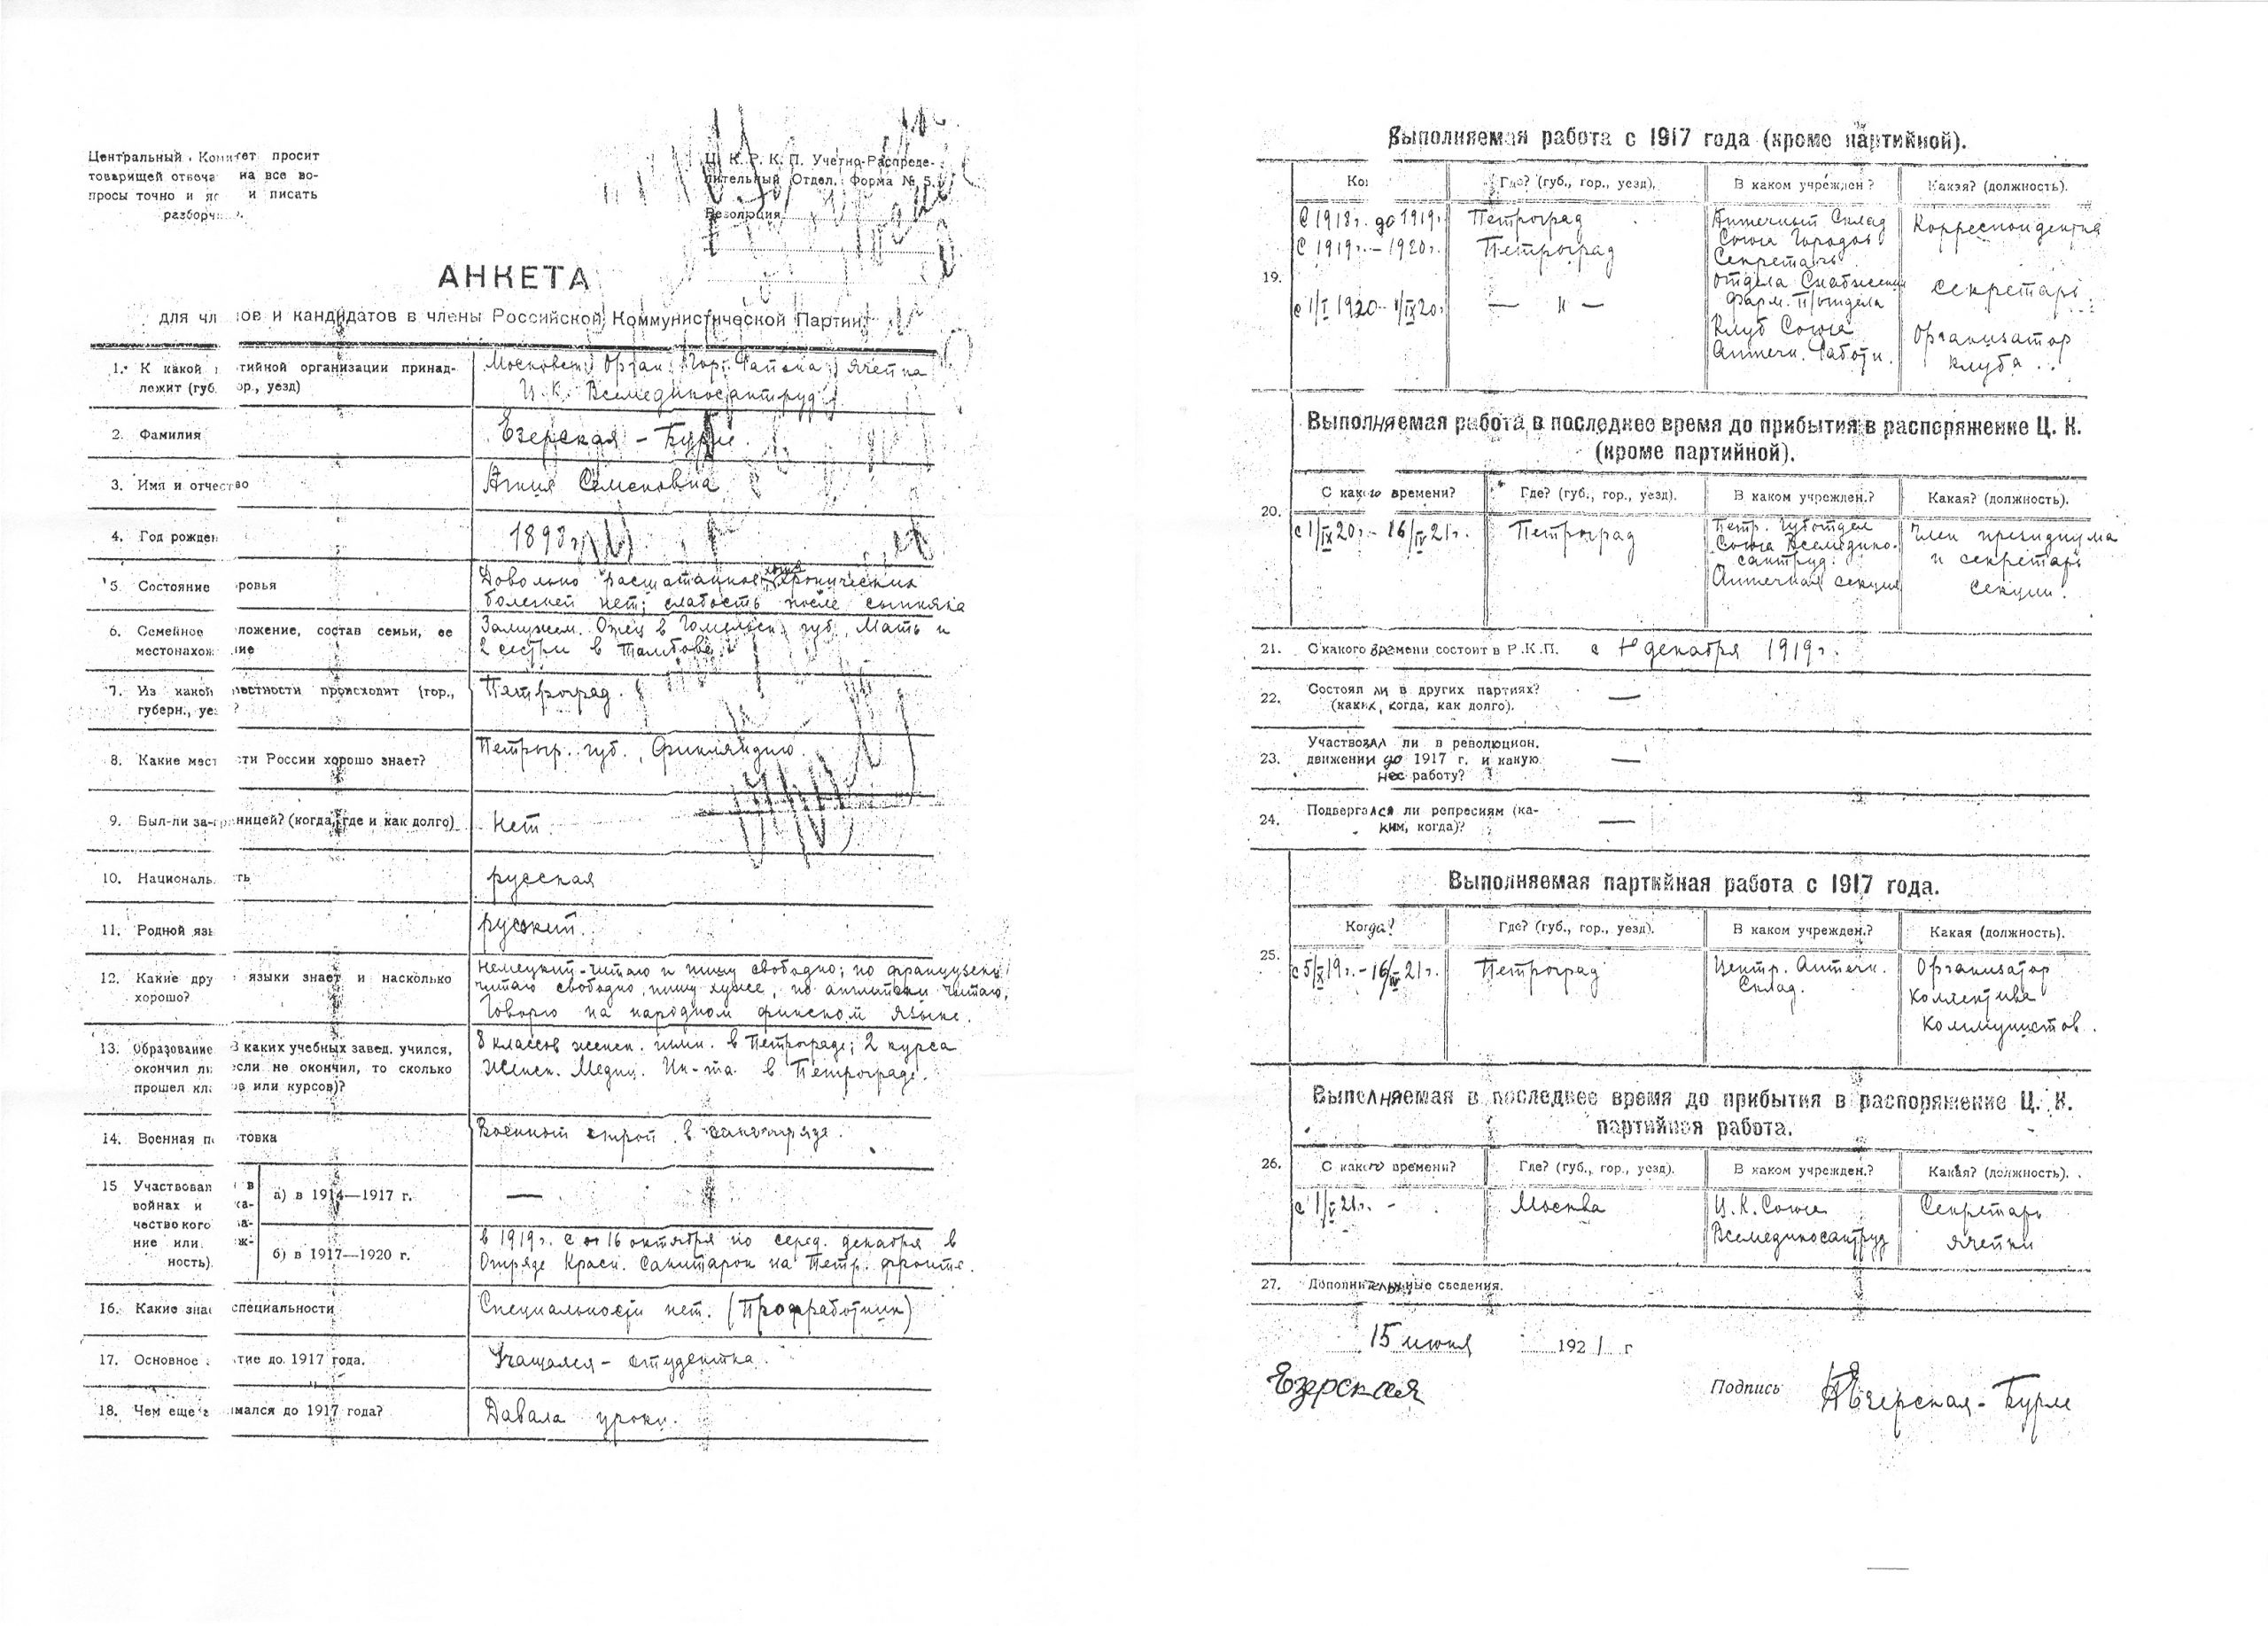 Центральный Комитет просит
товарищей отвеча на все во-
просы точно и яс и писать
разборч
Ц. К. Р. К. П. Учетно-Распреде-
лительный Отдел. Форма № 5.
Резолюция
АНКЕТА
для чл нов и кандидатов в члены Российской Коммунистической Партии
1. К какой тийной организации принад-
лежит (губ. ор., уезд)
Московск. Орган. Гор. Района, Ячейка
Ц. К. Всемедикосантруд
2. Фамилия
Езерская - Бурле.
3. Имя и отчество
Агния Семеновна
4. Год рожден
1893 г.
5. Состояние ровья
Довольно расшатанное, хронических
болезней нет; слабость после сыпняка
6. Семейное ложение, состав семьи, ее
местонахож ие
Замужем. Отец в Гомельск. губ., Мать и
2 сестры в Тамбове.
7. Из какой местности происходит (гор.,
губерн., уе ?
Петроград.
8. Какие мест сти России хорошо знает?
Петрогр. губ., Финляндию.
9. Был-ли за-границей? (когда, где и как долго)
Нет.
10. Националь ть
русская
11. Родной яз
русский.
12. Какие дру языки знает и насколько
хорошо?
Немецкий - читаю и пишу свободно; по французски
читаю свободно, пишу хуже, по английски читаю,
Говорю на народном финском языке.
13. Образование В каких учебных завед. учился,
окончил ли если не окончил, то сколько
прошел кла ов или курсов)?
8 классов женск. гимн. в Петрограде; 2 курса
Женск. Медиц. Ин-та в Петрограде.
14. Военная п товка
Военный строй в санотряде.
15 Участвовал в
войнах и ка-
чество кого
ние или ж-
ность).
а) в 1914—1917 г.
—
б) в 1917—1920 г.
в 1919 г. с 16 октября по серед. декабря в
Отряде Красн. Санитарок на Петр. фронте.
16. Какие зна специальности
Специальности нет. (Профработник)
17. Основное тие до 1917 года.
Учащаяся - студентка.
18. Чем еще мался до 1917 года?
Давала уроки.
Выполняемая работа с 1917 года (кроме партийной).
19.
Ко
Где? (губ., гор., уезд).
В каком учрежден?
Какая? (должность).
С 1918 г. до 1919 г.
Петроград
Аптечный Склад
Союза Городов
Корреспондентка
С 1919 г. - 1920 г.
Петроград
Секретарь
отдела Снабжения
Фарм. П/отдела
секретарь
с 1/I 1920 - 1/IX 20 г.
— " —
Клуб Союза
Аптечн. Работн.
Организатор
клуба
Выполняемая работа в последнее время до прибытия в распоряжение Ц. К.
(кроме партийной).
20.
С какого времени?
Где? (губ., гор., уезд).
В каком учрежден.?
Какая? (должность).
с 1/IX 20 г. - 16/IV 21 г.
Петроград
Петр. Губотдел
Союза Всемедико-
сантруд.
Аптечная секция
Член президиума
и секретарь
секции.
21. С какого времени состоит в Р.К.П.
с декабря 1919 г.
22. Состоял ли в других партиях?
(каких, когда, как долго).
—
23. Участвовал ли в революцион.
движении до 1917 г. и какую
нес работу?
—
24. Подвергался ли репресиям (ка-
ким, когда)?
—
Выполняемая партийная работа с 1917 года.
25.
Когда?
Где? (губ., гор., уезд).
В каком учрежден.?
Какая (должность).
с 5/X 19 г. - 16/IV 21 г.
Петроград
Центр. Аптечн.
Склад.
Организатор
коллектива
коммунистов.
Выполняемая в последнее время до прибытия в распоряжение Ц. К.
партийная работа.
26.
С какого времени?
Где? (губ., гор., уезд).
В каком учрежден.?
Какая? (должность).
с 1/V 21 г. -
Москва
Ц. К. Союза
Всемедикосантруд
Секретарь
ячейки
27. Дополнительные сведения.
15 июня 1921 г
Езерская
Подпись
АЕзерская - Бурле